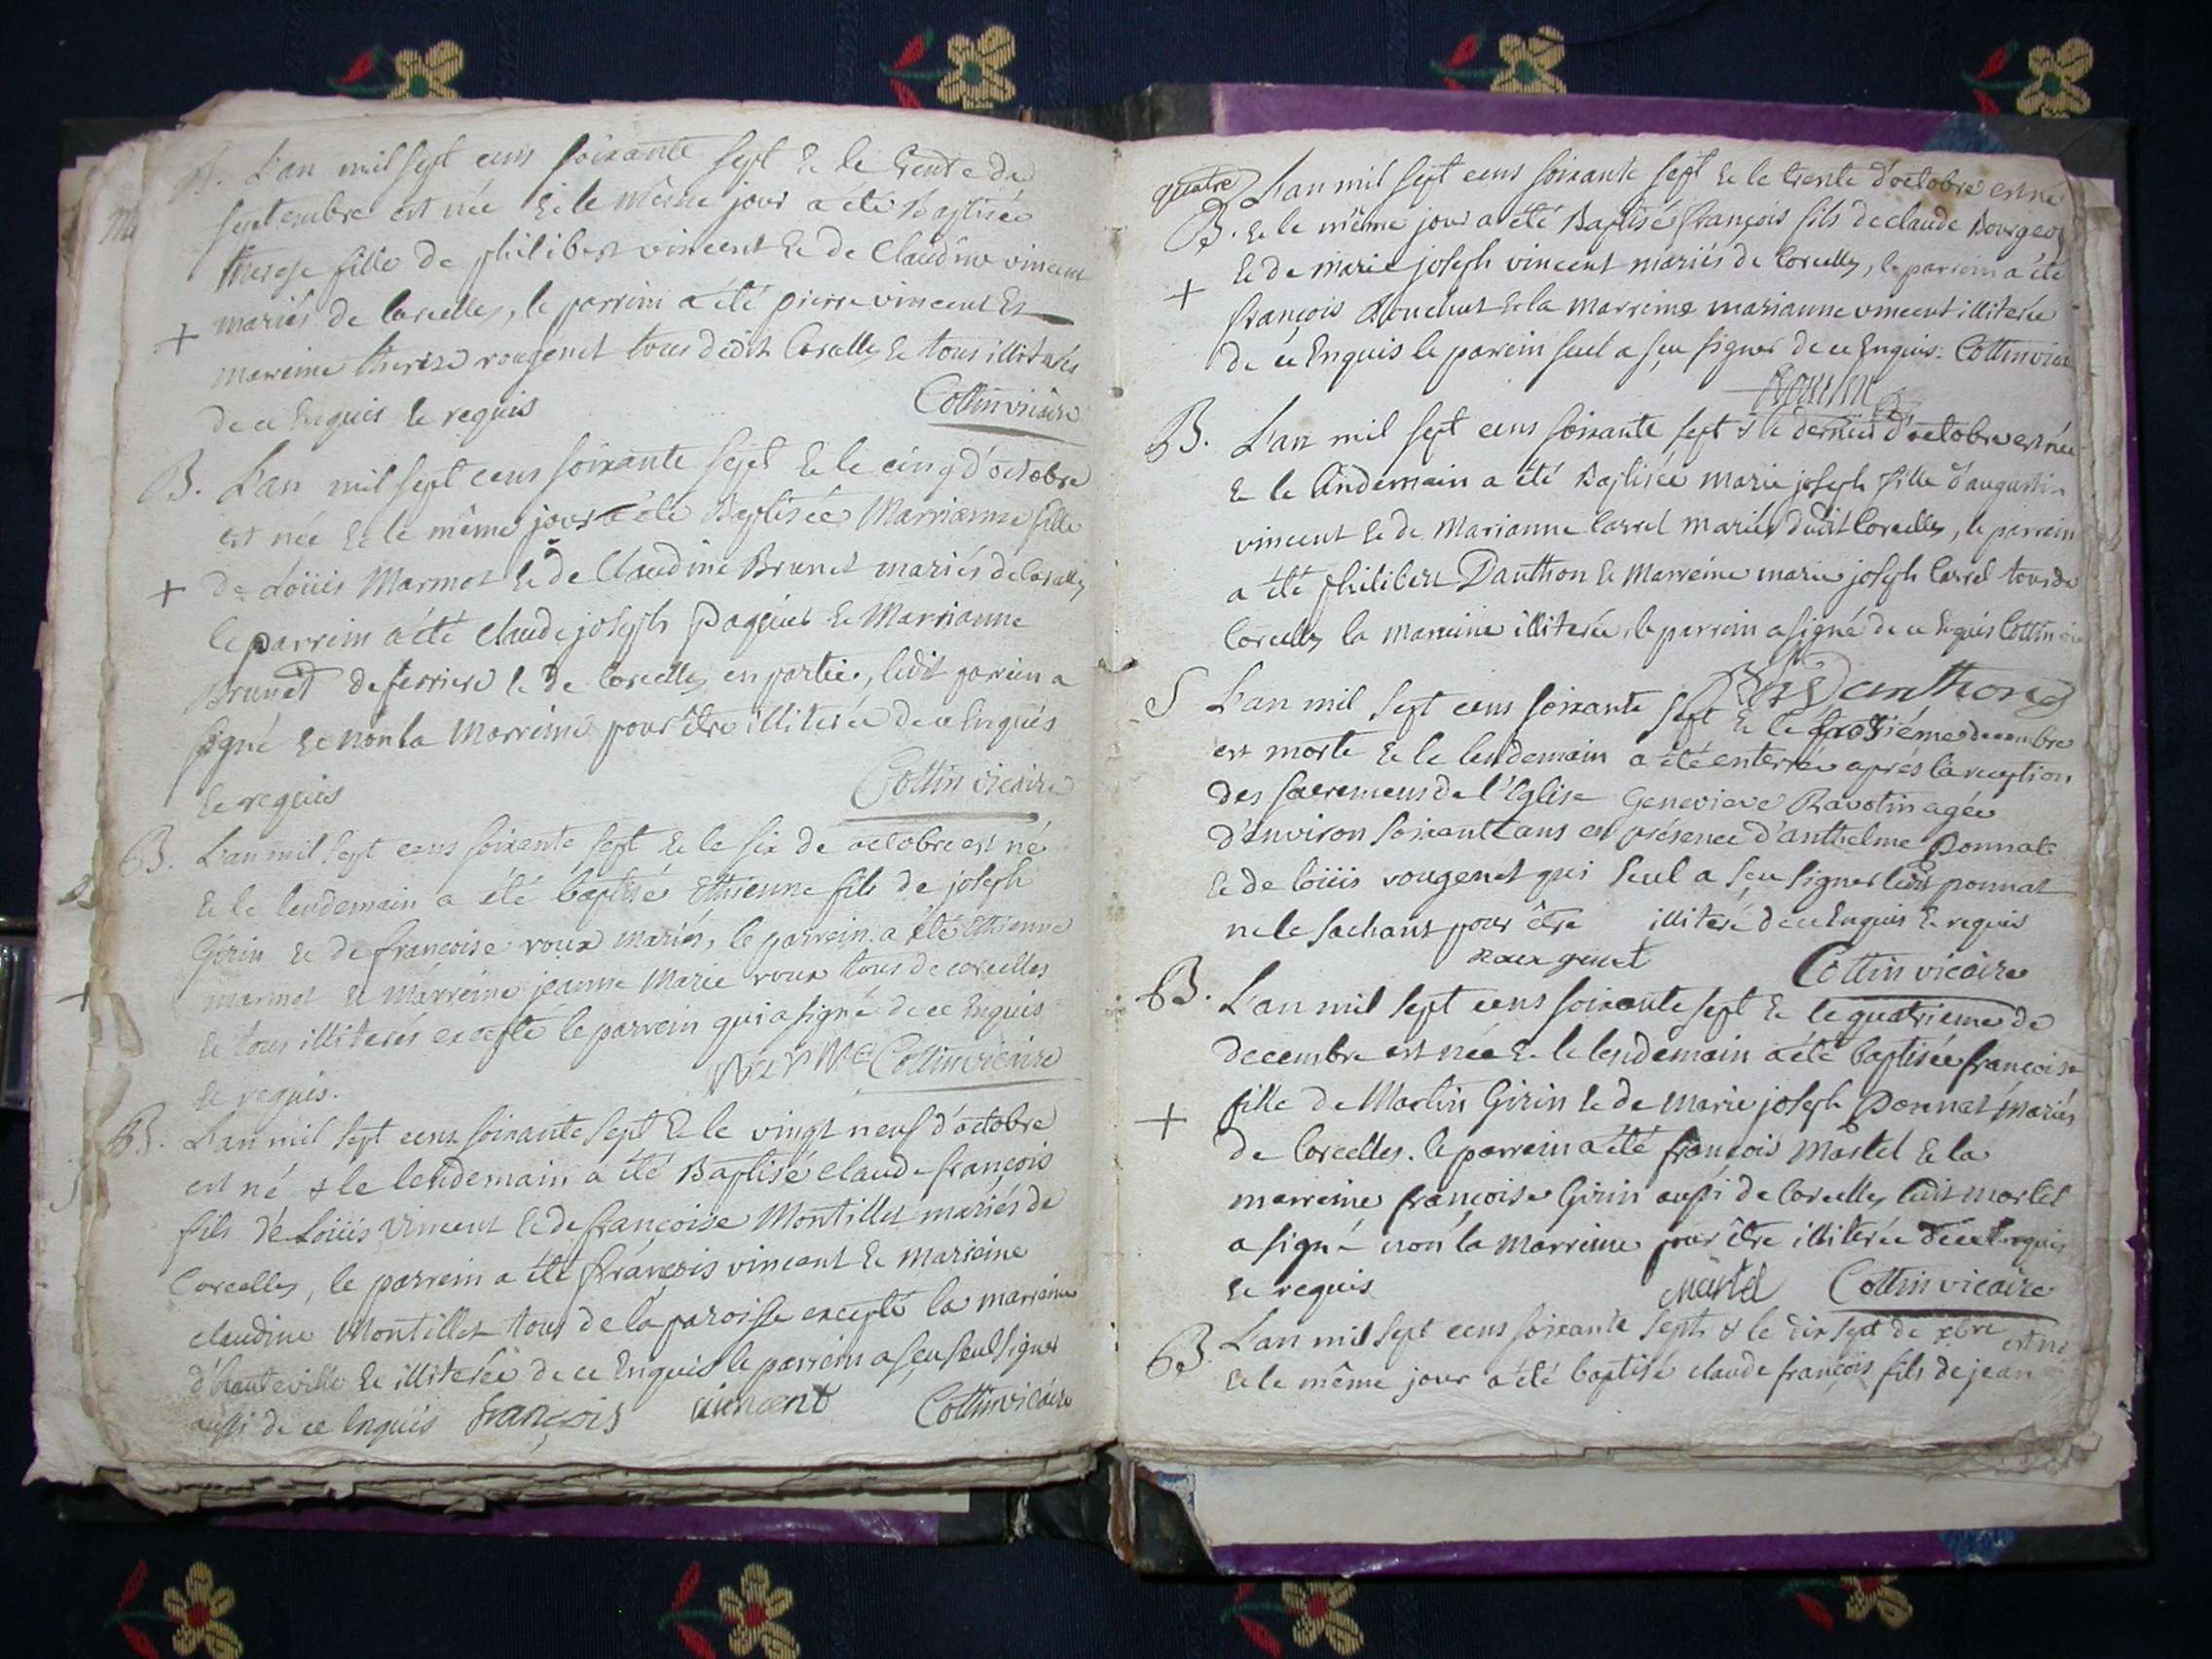 B. L'an mil sept cens soixante sept & le trente de
septembre est née & le même jour a été Baptisée
therese fille de philibert vincent & de Claudine vincent
+ mariés de Corcelles, le parrein a été pierre vincent &
marreine therese rougenet tous dedit Corcelles & tous illiterés
de ce Enquis & requis Cottin vicaire
B. L'an mil sept cens soixante sept & le cinq d'octobre
est née & le même jour a été Baptisée Marrianne fille
+ de Loüis Marmet & de Claudine Brunet mariés de Corcelles
le parrein a été claude joseph Paquet & Marrianne
Brunet de ferriere & de Corcelles en partie, ledit parrein a
signé & non la Marreine pour être illiterée de ce Enquis
& requis Cottin vicaire
B. L'an mil sept cens soixante sept & le six de octobre est né
& le lendemain a été baptisé Ethienne fils de joseph
Girin & de francoise roux mariés, le parrein a été Ethienne
+ marmet & marreine jeanne Marie roux tous de corcelles
& tous illiterés excepté le parrein qui a signé de ce Enquis
& requis. Marmet Cottin vicaire
B. L'an mil sept cens soixante sept & le vingt neuf d'octobre
est né & le lendemain a été Baptisé claude françois
fils de Loüis vincent & de françoise Montillet mariés de
Corcelles, le parrein a été françois vincent & marreine
claudine Montillet tous de la paroisse excepté la marreine
d'hauteville & illiterée de ce Enquis le parrein a seu seul signer
aussi de ce Enquis françois vincent Cottin vicaire
quatre L'an mil sept cens soixante sept & le trente d'octobre est né
B. & le même jour a été Baptisé françois fils de claude Bourgeois
+ & de marie joseph vincent mariés de Corcelles, le parrein a été
françois Bouchut & la marreine marianne vincent illiterée
de ce Enquis le parrein seul a seu signer de ce Enquis. Cottin vicaire
B. L'an mil sept cens soixante sept & le dernier d'octobre est née
& le lindemain a été Baptisée marie joseph fille d'augustin
vincent & de Marianne Carrel mariés dudit Corcelles, le parrein
a été philibert Danthon & Marreine marie joseph Carrel tous de
Corcelles la marreine illiterée, le parrein a signé de ce Enquis Cottin vic
Danthon
S L'an mil sept cens soixante sept & le troisiéme decembre
est morte & le lendemain a été enterrée aprés la reception
des sacremens de l'Eglise Genevieve Ravotin agée
d'environ soixante ans en présence d'anthelme Ponnat
& de loüis rougenet qui seul a seu signer ledit ponnat
ne le sachant pour être illiteré de ce Enquis & requis
rougenet Cottin vicaire
B. L'an mil sept cens soixante sept & le quatrieme de
decembre est née & le lendemain a été baptisée françoise
+ fille de Martin Girin & de marie joseph Ponnat mariés
de Corcelles. le parrein a été françois Martel & la
marreine françoise Girin aussi de Corcelles, ledit martel
a signé non la marreine pour être illiterée de ce Enquis
& requis martel Cottin vicaire
B. L'an mil sept cens soixante sept & le dix sept de xbre est né
& le même jour a été baptisé claude françois fils de jean